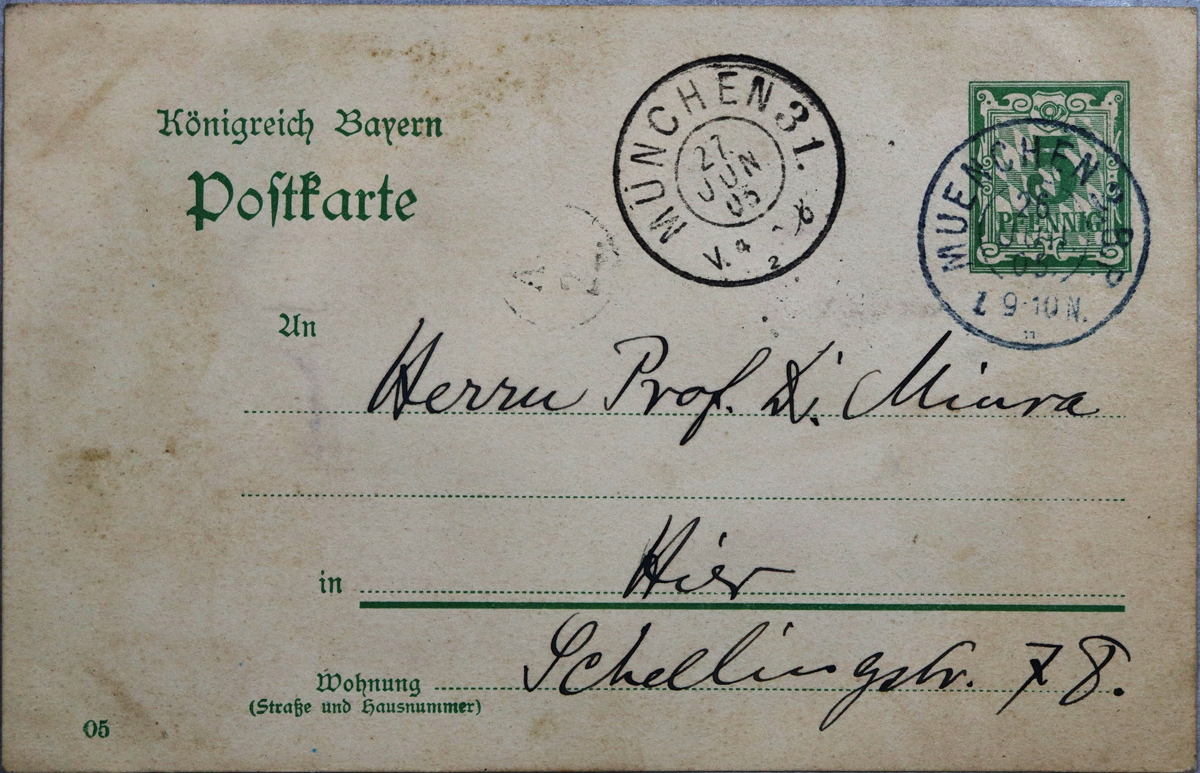 Königreich Bayern
Postkarte
MÜNCHEN 31.
27.
JUN
05
V.
2
5
PFENNIG
MUENCHEN
26
05
9-10 N.
A
An
Herrn Prof. Dr. Miura
in Hier
Wohnung Schellingstr. 78.
(Straße und Hausnummer)
05